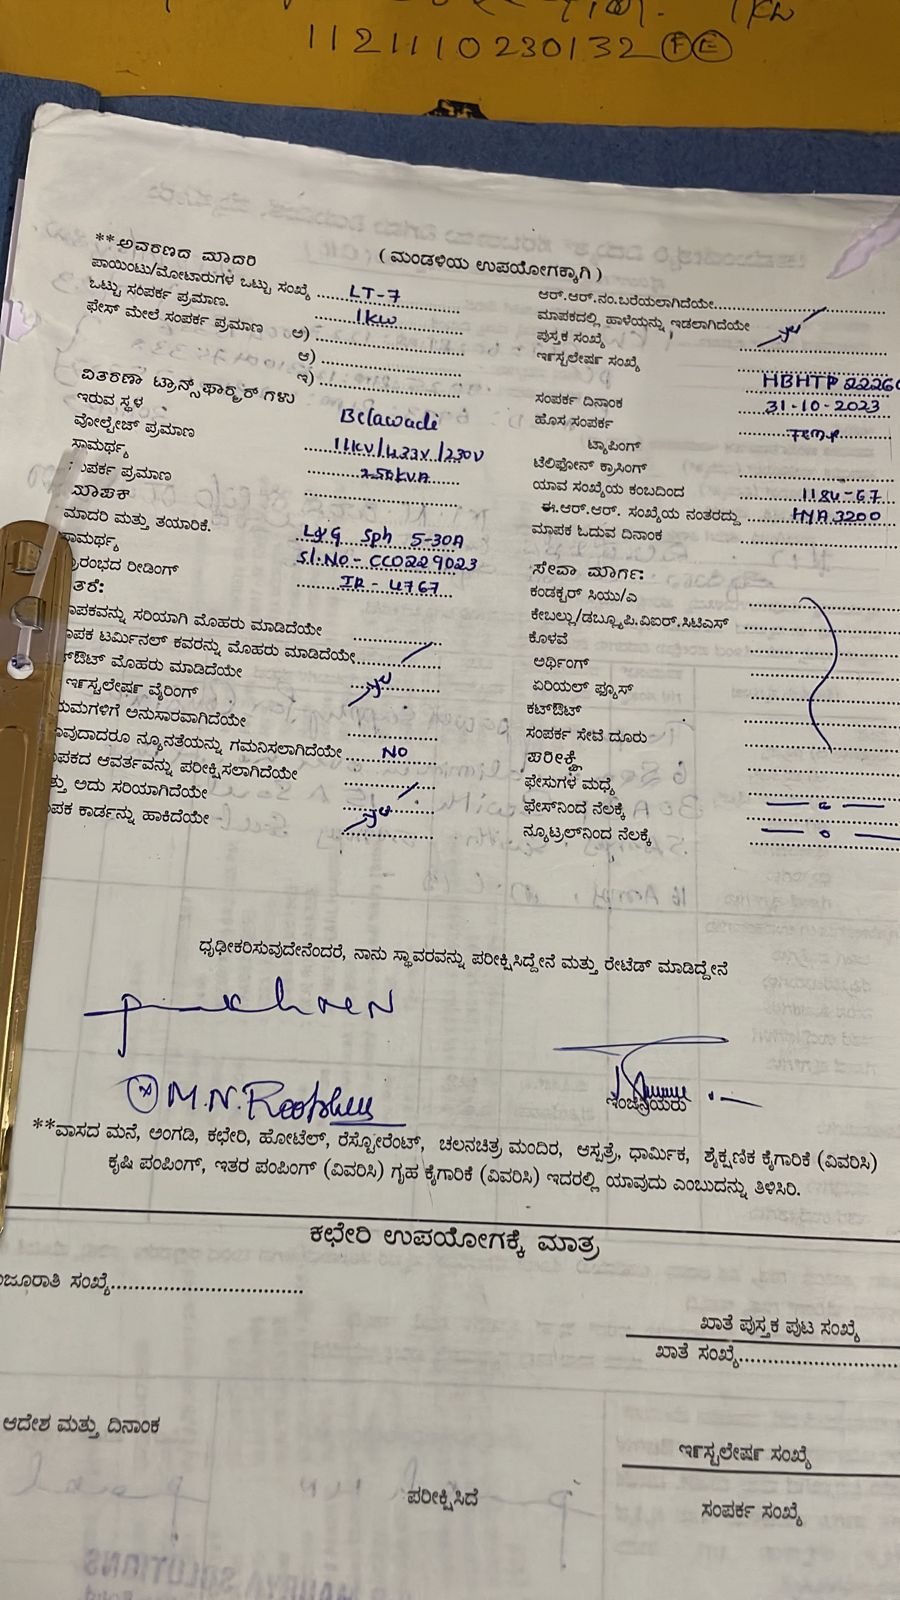 1KW
112111023013 2 FE
(ಮಂಡಳಿಯ ಉಪಯೋಗಕ್ಕಾಗಿ)
**ಅವರಣದ ಮಾದರಿ
ಪಾಯಿಂಟು/ಮೋಟಾರುಗಳ ಒಟ್ಟು ಸಂಖ್ಯೆ LT-7
ಒಟ್ಟು ಸಂಪರ್ಕ ಪ್ರಮಾಣ. 1KW
ಫೇಸ್ ಮೇಲೆ ಸಂಪರ್ಕ ಪ್ರಮಾಣ ಅ)
ಆ)
ಇ)
ವಿತರಣಾ ಟ್ರಾನ್ಸ್‌ಫಾರ್‍ಮರ್ ಗಳು
ಇರುವ ಸ್ಥಳ Belawadi
ವೋಲ್ಟೇಜ್ ಪ್ರಮಾಣ 11KV/433V/230V
ಸಾಮರ್ಥ್ಯ 250KVA
ಸಂಪರ್ಕ ಪ್ರಮಾಣ
ಮಾಪಕ
ಮಾದರಿ ಮತ್ತು ತಯಾರಿಕೆ. L&G Sph 5-30A
ಸಾಮರ್ಥ್ಯ Sl.No - CC0229023
ಪ್ರಾರಂಭದ ರೀಡಿಂಗ್ IR - 4767
ತರೆ:
ಮಾಪಕವನ್ನು ಸರಿಯಾಗಿ ಮೊಹರು ಮಾಡಿದೆಯೇ
ಮಾಪಕ ಟರ್ಮಿನಲ್ ಕವರನ್ನು ಮೊಹರು ಮಾಡಿದೆಯೇ
ಕಟ್‌ಔಟ್ ಮೊಹರು ಮಾಡಿದೆಯೇ
ಇನ್‌ಸ್ಟಲೇಷನ್ ವೈರಿಂಗ್
ನಿಯಮಗಳಿಗೆ ಅನುಸಾರವಾಗಿದೆಯೇ
ಯಾವುದಾದರೂ ನ್ಯೂನತೆಯನ್ನು ಗಮನಿಸಲಾಗಿದೆಯೇ NO
ಮಾಪಕದ ಆವರ್ತವನ್ನು ಪರೀಕ್ಷಿಸಲಾಗಿದೆಯೇ
ಮತ್ತು ಅದು ಸರಿಯಾಗಿದೆಯೇ
ಮಾಪಕ ಕಾರ್ಡನ್ನು ಹಾಕಿದೆಯೇ
ಆರ್.ಆರ್.ನಂ.ಬರೆಯಲಾಗಿದೆಯೇ
ಮಾಪಕದಲ್ಲಿ ಹಾಳೆಯನ್ನು ಇಡಲಾಗಿದೆಯೇ
ಪುಸ್ತಕ ಸಂಖ್ಯೆ
ಇನ್‌ಸ್ಟಲೇಷನ್ ಸಂಖ್ಯೆ HBHTP 2226
ಸಂಪರ್ಕ ದಿನಾಂಕ 31-10-2023
ಹೊಸ ಸಂಪರ್ಕ
ಟ್ಯಾಪಿಂಗ್
ಟೆಲಿಫೋನ್ ಕ್ರಾಸಿಂಗ್
ಯಾವ ಸಂಖ್ಯೆಯ ಕಂಬದಿಂದ 1184-67
ಈ.ಆರ್.ಆರ್. ಸಂಖ್ಯೆಯ ನಂತರದ್ದು HYA3200
ಮಾಪಕ ಓದುವ ದಿನಾಂಕ
ಸೇವಾ ಮಾರ್ಗ:
ಕಂಡಕ್ಟರ್ ಸಿಯು/ಎ
ಕೇಬಲ್ಲು/ಡಬ್ಲ್ಯೂಪಿ.ವಿಐರ್.ಸಿಟಿಎಸ್
ಕೊಳವೆ
ಅರ್ಥಿಂಗ್
ಏರಿಯಲ್ ಫ್ಯೂಸ್
ಕಟ್‌ಔಟ್
ಸಂಪರ್ಕ ಸೇವೆ ದೂರು
ಪರೀಕ್ಷೆ
ಫೇಸುಗಳ ಮಧ್ಯೆ
ಫೇಸ್‌ನಿಂದ ನೆಲಕ್ಕೆ
ನ್ಯೂಟ್ರಲ್‌ನಿಂದ ನೆಲಕ್ಕೆ
ಧೃಢೀಕರಿಸುವುದೇನೆಂದರೆ, ನಾನು ಸ್ಥಾವರವನ್ನು ಪರೀಕ್ಷಿಸಿದ್ದೇನೆ ಮತ್ತು ರೇಟೆಡ್ ಮಾಡಿದ್ದೇನೆ
ಇಂಜಿನಿಯರು
**ವಾಸದ ಮನೆ, ಅಂಗಡಿ, ಕಛೇರಿ, ಹೋಟೆಲ್, ರೆಸ್ಟೋರೆಂಟ್, ಚಲನಚಿತ್ರ ಮಂದಿರ, ಆಸ್ಪತ್ರೆ, ಧಾರ್ಮಿಕ, ಶೈಕ್ಷಣಿಕ ಕೈಗಾರಿಕೆ (ವಿವರಿಸಿ)
ಕೃಷಿ ಪಂಪಿಂಗ್, ಇತರ ಪಂಪಿಂಗ್ (ವಿವರಿಸಿ) ಗೃಹ ಕೈಗಾರಿಕೆ (ವಿವರಿಸಿ) ಇದರಲ್ಲಿ ಯಾವುದು ಎಂಬುದನ್ನು ತಿಳಿಸಿರಿ.
ಕಛೇರಿ ಉಪಯೋಗಕ್ಕೆ ಮಾತ್ರ
ಮಜೂರಾತಿ ಸಂಖ್ಯೆ
ಖಾತೆ ಪುಸ್ತಕ ಪುಟ ಸಂಖ್ಯೆ
ಖಾತೆ ಸಂಖ್ಯೆ
ಆದೇಶ ಮತ್ತು ದಿನಾಂಕ
ಇನ್‌ಸ್ಟಲೇಷನ್ ಸಂಖ್ಯೆ
ಪರೀಕ್ಷಿಸಿದೆ
ಸಂಪರ್ಕ ಸಂಖ್ಯೆ